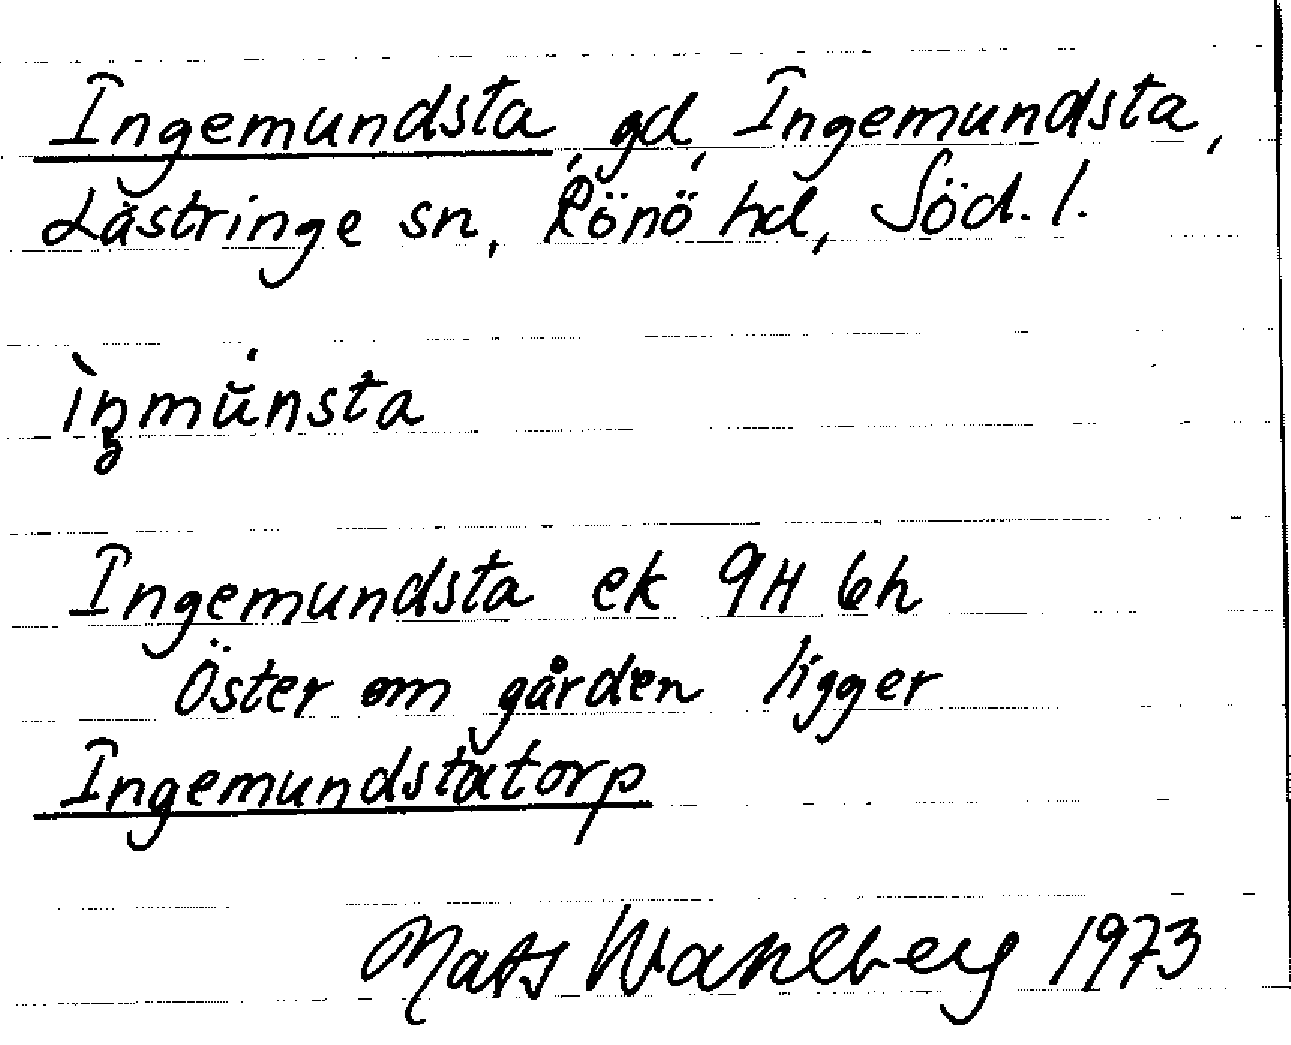 Ingemundsta, gd, Ingemundsta,
Lästringe sn, Rönö hd, Söd. l.
ìŋmu̇̆nsta
Ingemundsta ek 9H 6h
Öster om gården ligger
Ingemundstatorp
Mats Wahlberg 1973